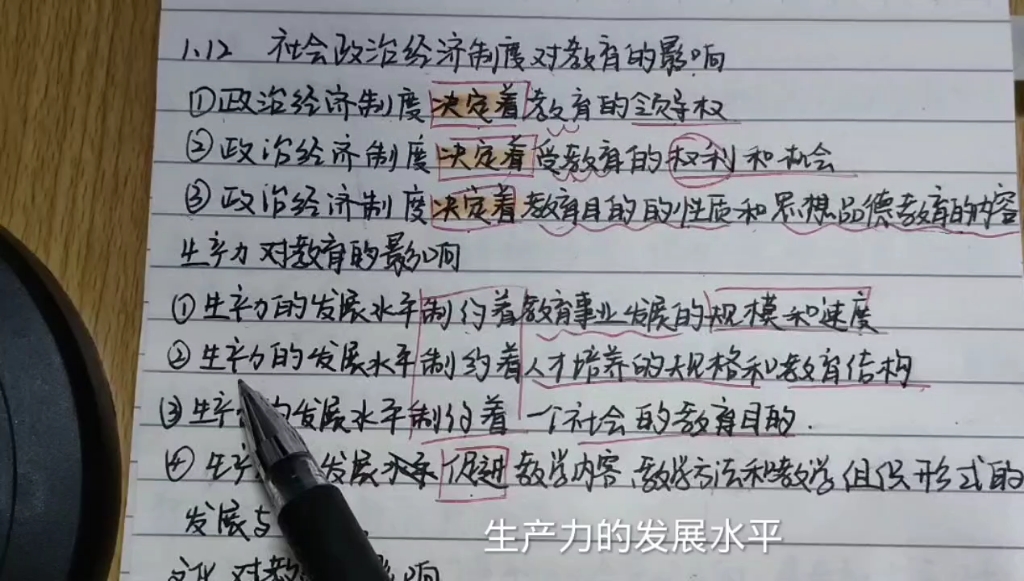 1.12 社会政治经济制度对教育的影响
①政治经济制度决定着教育的领导权
②政治经济制度决定着受教育的权利和机会
③政治经济制度决定着教育目的的性质和思想品德教育的内容
生产力对教育的影响
①生产力的发展水平制约着教育事业发展的规模和速度
②生产力的发展水平制约着人才培养的规格和教育结构
③生产 的发展水平制约着一个社会的教育目的.
④生产 发展水平促进教学内容、教学方法和教学组织形式的
发展与
生产力的发展水平
文化对教 影响